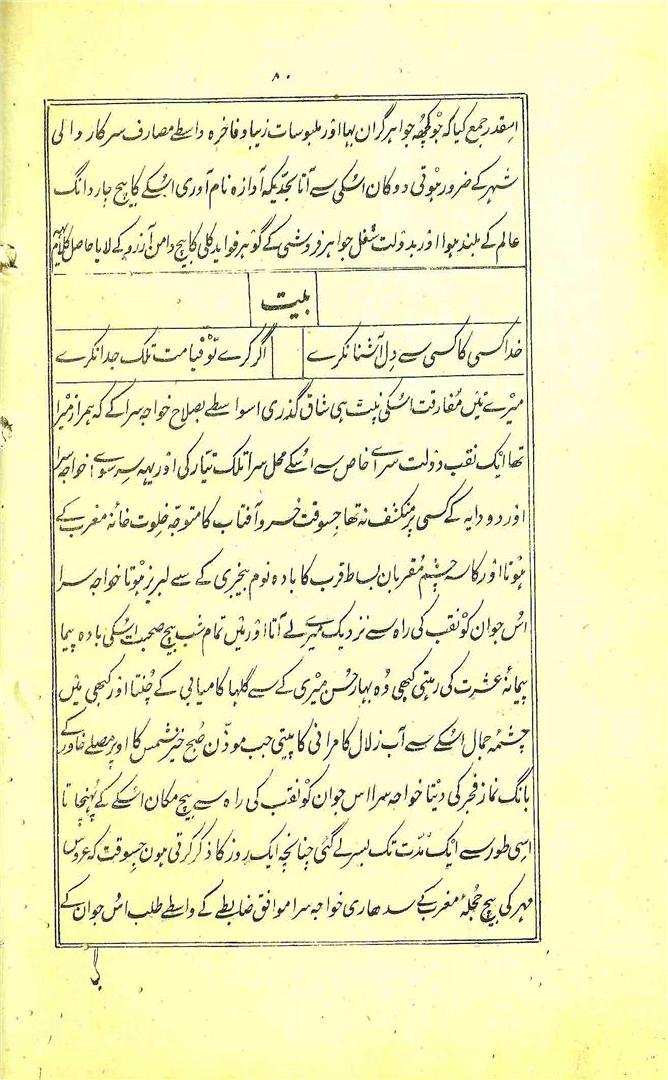 ۸۰
اسقدر جمع کیا کہ جو کچھہ جواہر گران بہا اور ملبوسات زیبا و فاخرہ واسطے مصارف سرکار والی
شہر کے ضرور ہوتی دوکان اُسکی سے آتا بحدیکہ آوازہ نام آوری اُسکے کا بیچ چار دانگ
عالم کے بلند ہوا اور بدولت شغل جواہر فروشی کے گوہر فواید کلی کا بیچ دامن آرزو کے لایا حاصل کلام یہہ
بیت
خدا کسی کا کسی سے دل آشنا نکرے اگر کرے تو قیامت تلک جدا نکرے
میرے تئیں مُفارقت اُسکی نپٹ ہی شاق گذری اسواسطے بصلاح خواجہ سرا کے کہ ہمراز میرا
تھا ایک نقب دولت سراے خاص سے اُسکے محل سرا تلک تیار کی اور یہہ سہ سوے خواجہ سرا
اور دو دایہ کے کسی پر منکشف نہ تھا جسوقت خسرو آفتاب کا متوجّہ خلوت خانۂ مغرب کے
ہوتا اور کاسہ چشم مُقربان بساط قرب کا بادہ نوم بیخبری کے سے لبریز ہوتا خواجہ سرا
اُس جوان کو نقب کی راہ سے نزدیک میرے لے آتا اور میں تمام شب بیچ صحبت اُسکی بادہ پیما
پیمانۂ عشرت کی رہتی کبھی وُہ بہار حُسن میری کے سے گلہا کامیابی کے چُنتا اور کبھی میں
چشمۂ جمال اُسکے سے آب زلال کامرانی کا پیتی جب موذّن صُبح خیز شمس کا اوپر مصلے خاور کے
بانگ نماز فجر کی دیتا خواجہ سرا اس جوان کو نقب کی راہ سے بیچ مکان اُسکے کے پُہنچاتا
اسی طور سے ایک مُدّت تک بسر لے گئی چنانچہ ایک روز کا ذکر کرتی ہون جسوقت کہ عروس
مہر کی بیچ حُجلۂ مغرب کے سدھاری خواجہ سرا موافق ضابطے کے واسطے طلب اُس جوان کے